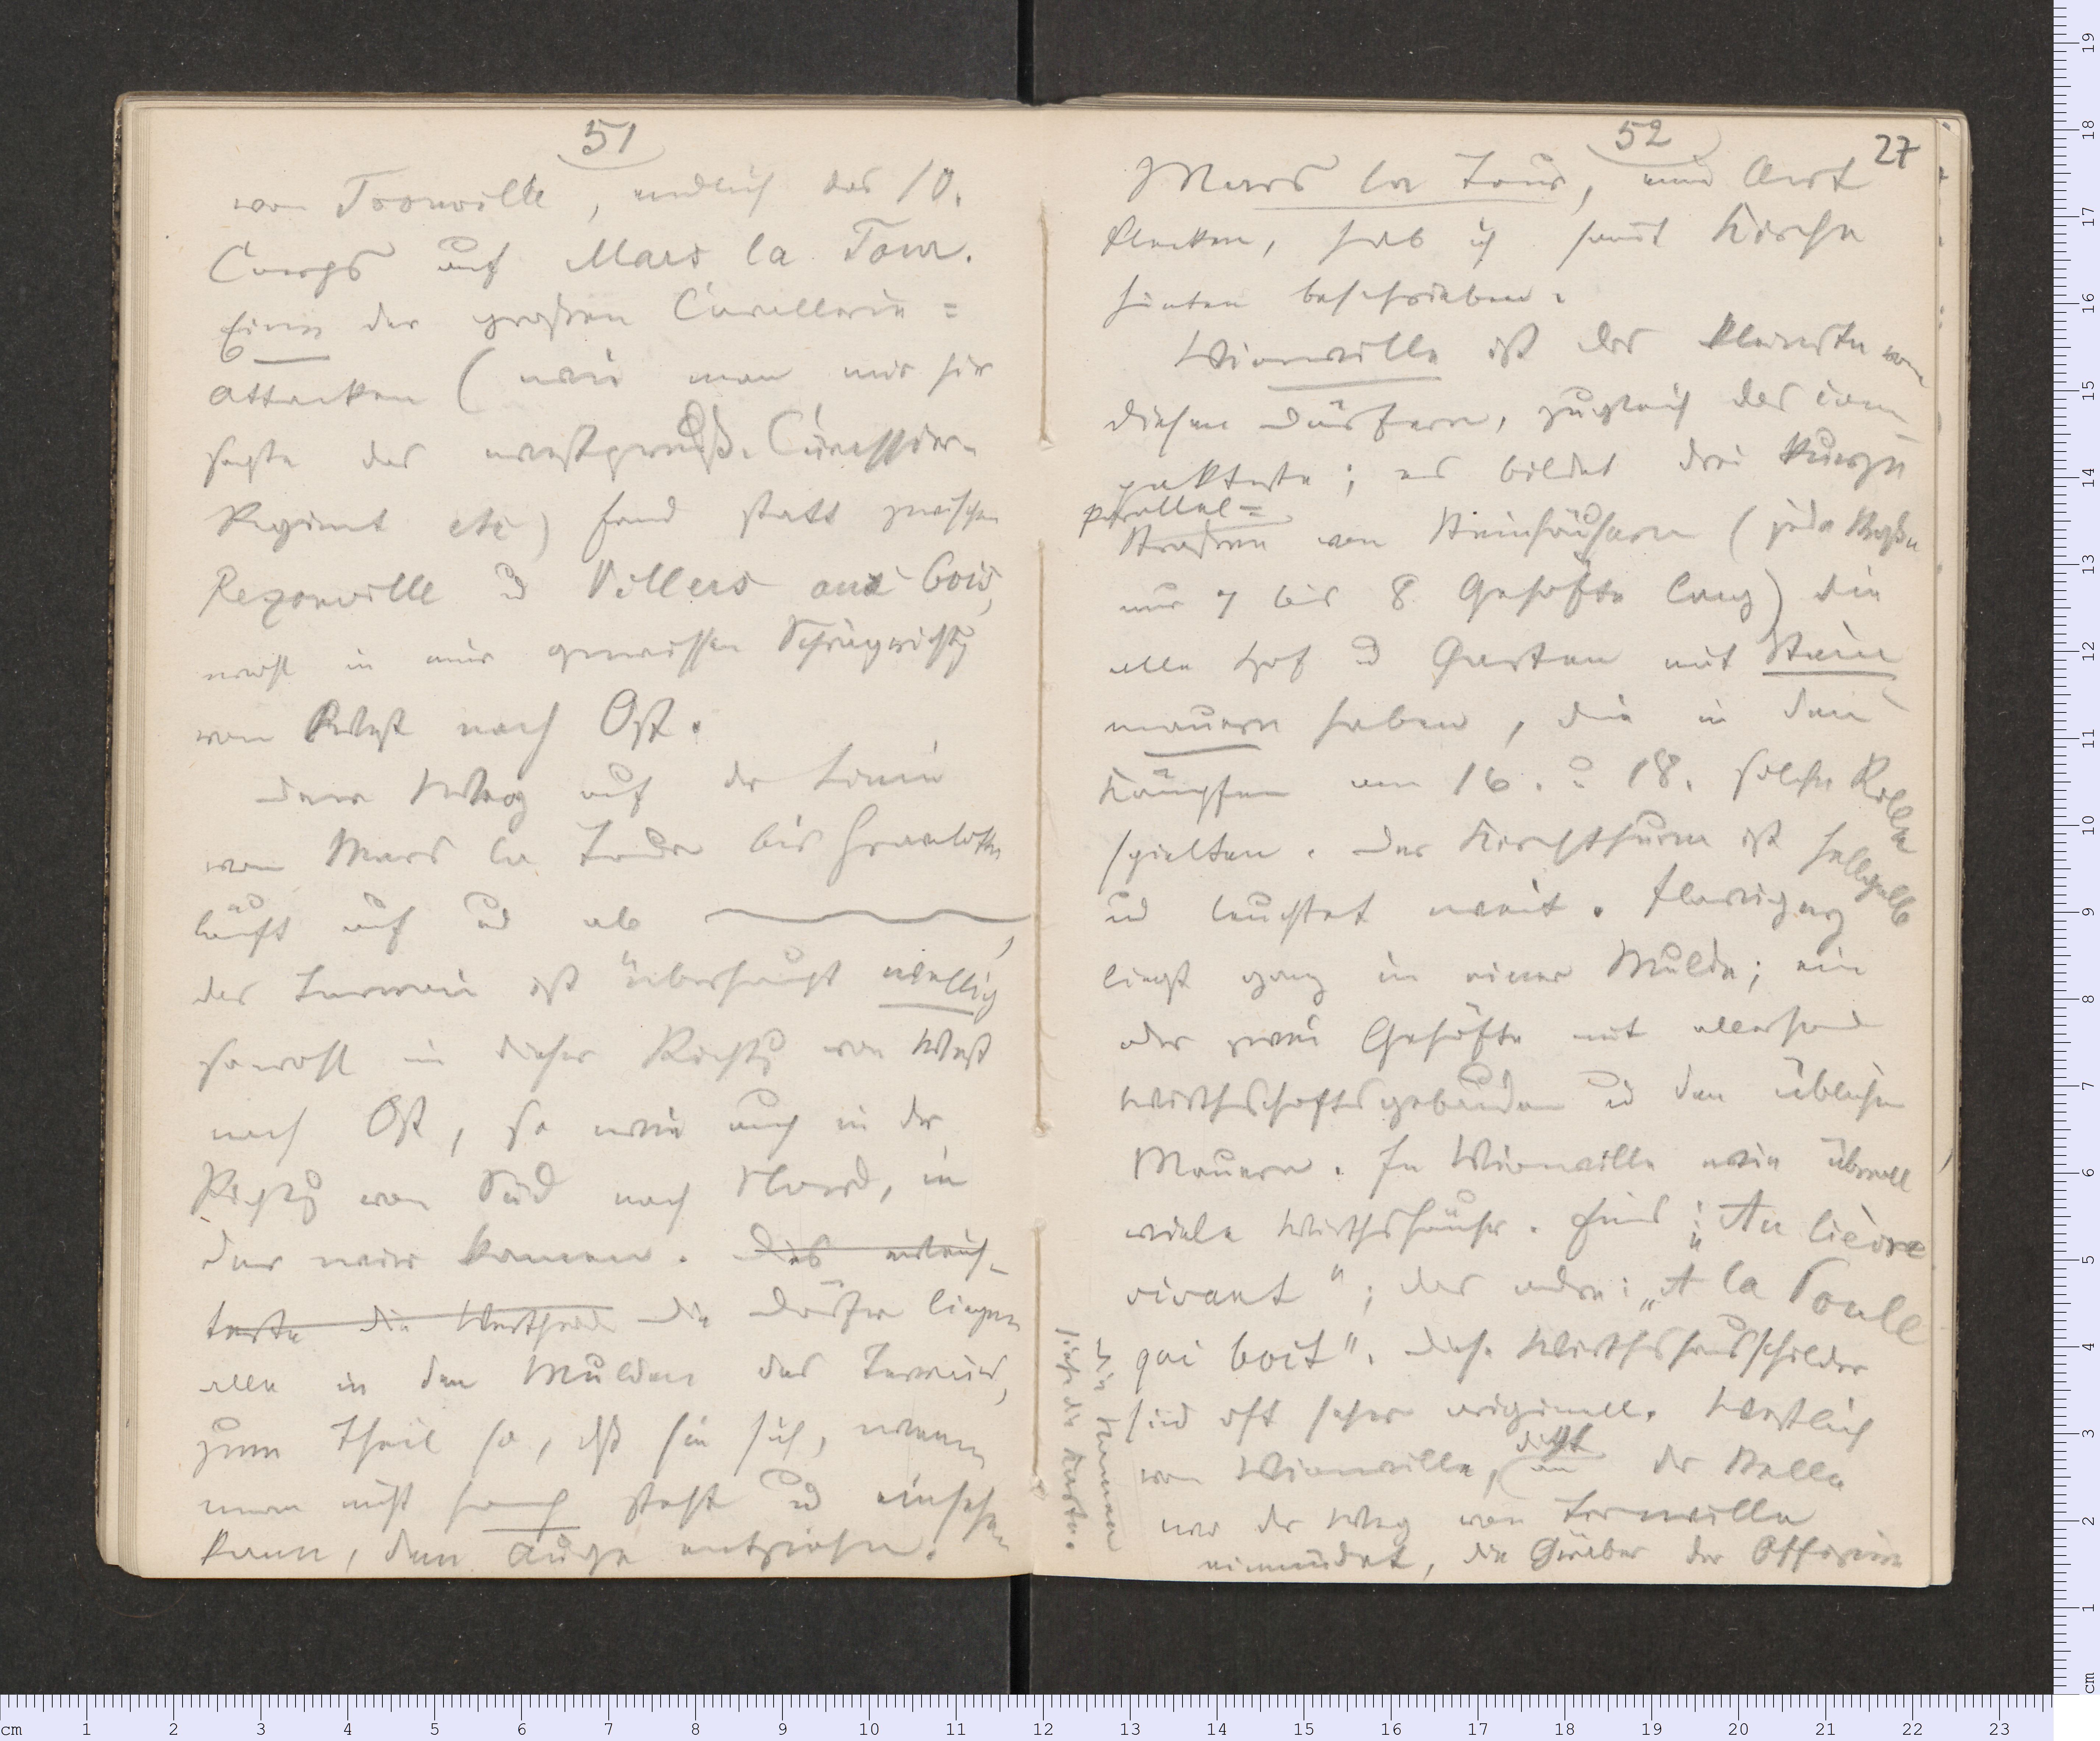 51
von Tronville, endlich das 10.
Corps auf Mars la Tour.
Eine der großen Cavallerie=
attacken (wie man mir hier
sagte das westpreuß. Cürassier-
Regiment etc) fand statt zwischen
Rezonville u Villers aux bois,
wohl in einer gewissen Schrägrichtg
von West nach Ost.
Der Weg auf der Linie
von Mars la Tour bis Gravelotte
läuft auf und ab
das Terrain ist überhaupt wellig,
sowohl in dieser Richtg von West
nach Ost, so wie auch in der
Richtg von Süd nach Nord, in
der wir kamen. Das
die Dörfer liegen
alle in den Mulden des Terrains,
zum Theil so, daß sie sich, wenn
man nicht hoch steht und einsehen
kann, dem Auge entziehen.
52
27
Mars la Tour, ein Art
Flecken, hab ich samt Kirche
hinten beschrieben.
Vionville ist das kleinste von
diesen Dörfern, zugleich das com-
pakteste; es bildet drei kurze
parallel=
Straßen von Steinhäusern (jede Straße
nur 7 bis 8 Gehöfte lang) die
alle Hof u Garten mit Stein
mauern haben, die in den
Kämpfen am 16. u 18. solche Rollen
spielten. Der Kirchthurm ist hellgelb
und leuchtet weit. Flavigny
liegt ganz in einer Mulde; ein
oder zwei Gehöfte mit allerhand
Wirthschaftsgebäuden und den üblichen
Mauern. In Vionville wie überall
viele Wirthshäuser. Eins: „Au lièvre
vivant"; das andre: „A la Poule
qui boit". Diese Wirthshausschilder
sind oft sehr originell. Westlich
dicht
von Vionville, an der Stelle
wo der Weg von Tronville
einmündet, die Gräber der Offiziere
siehe die Karte.